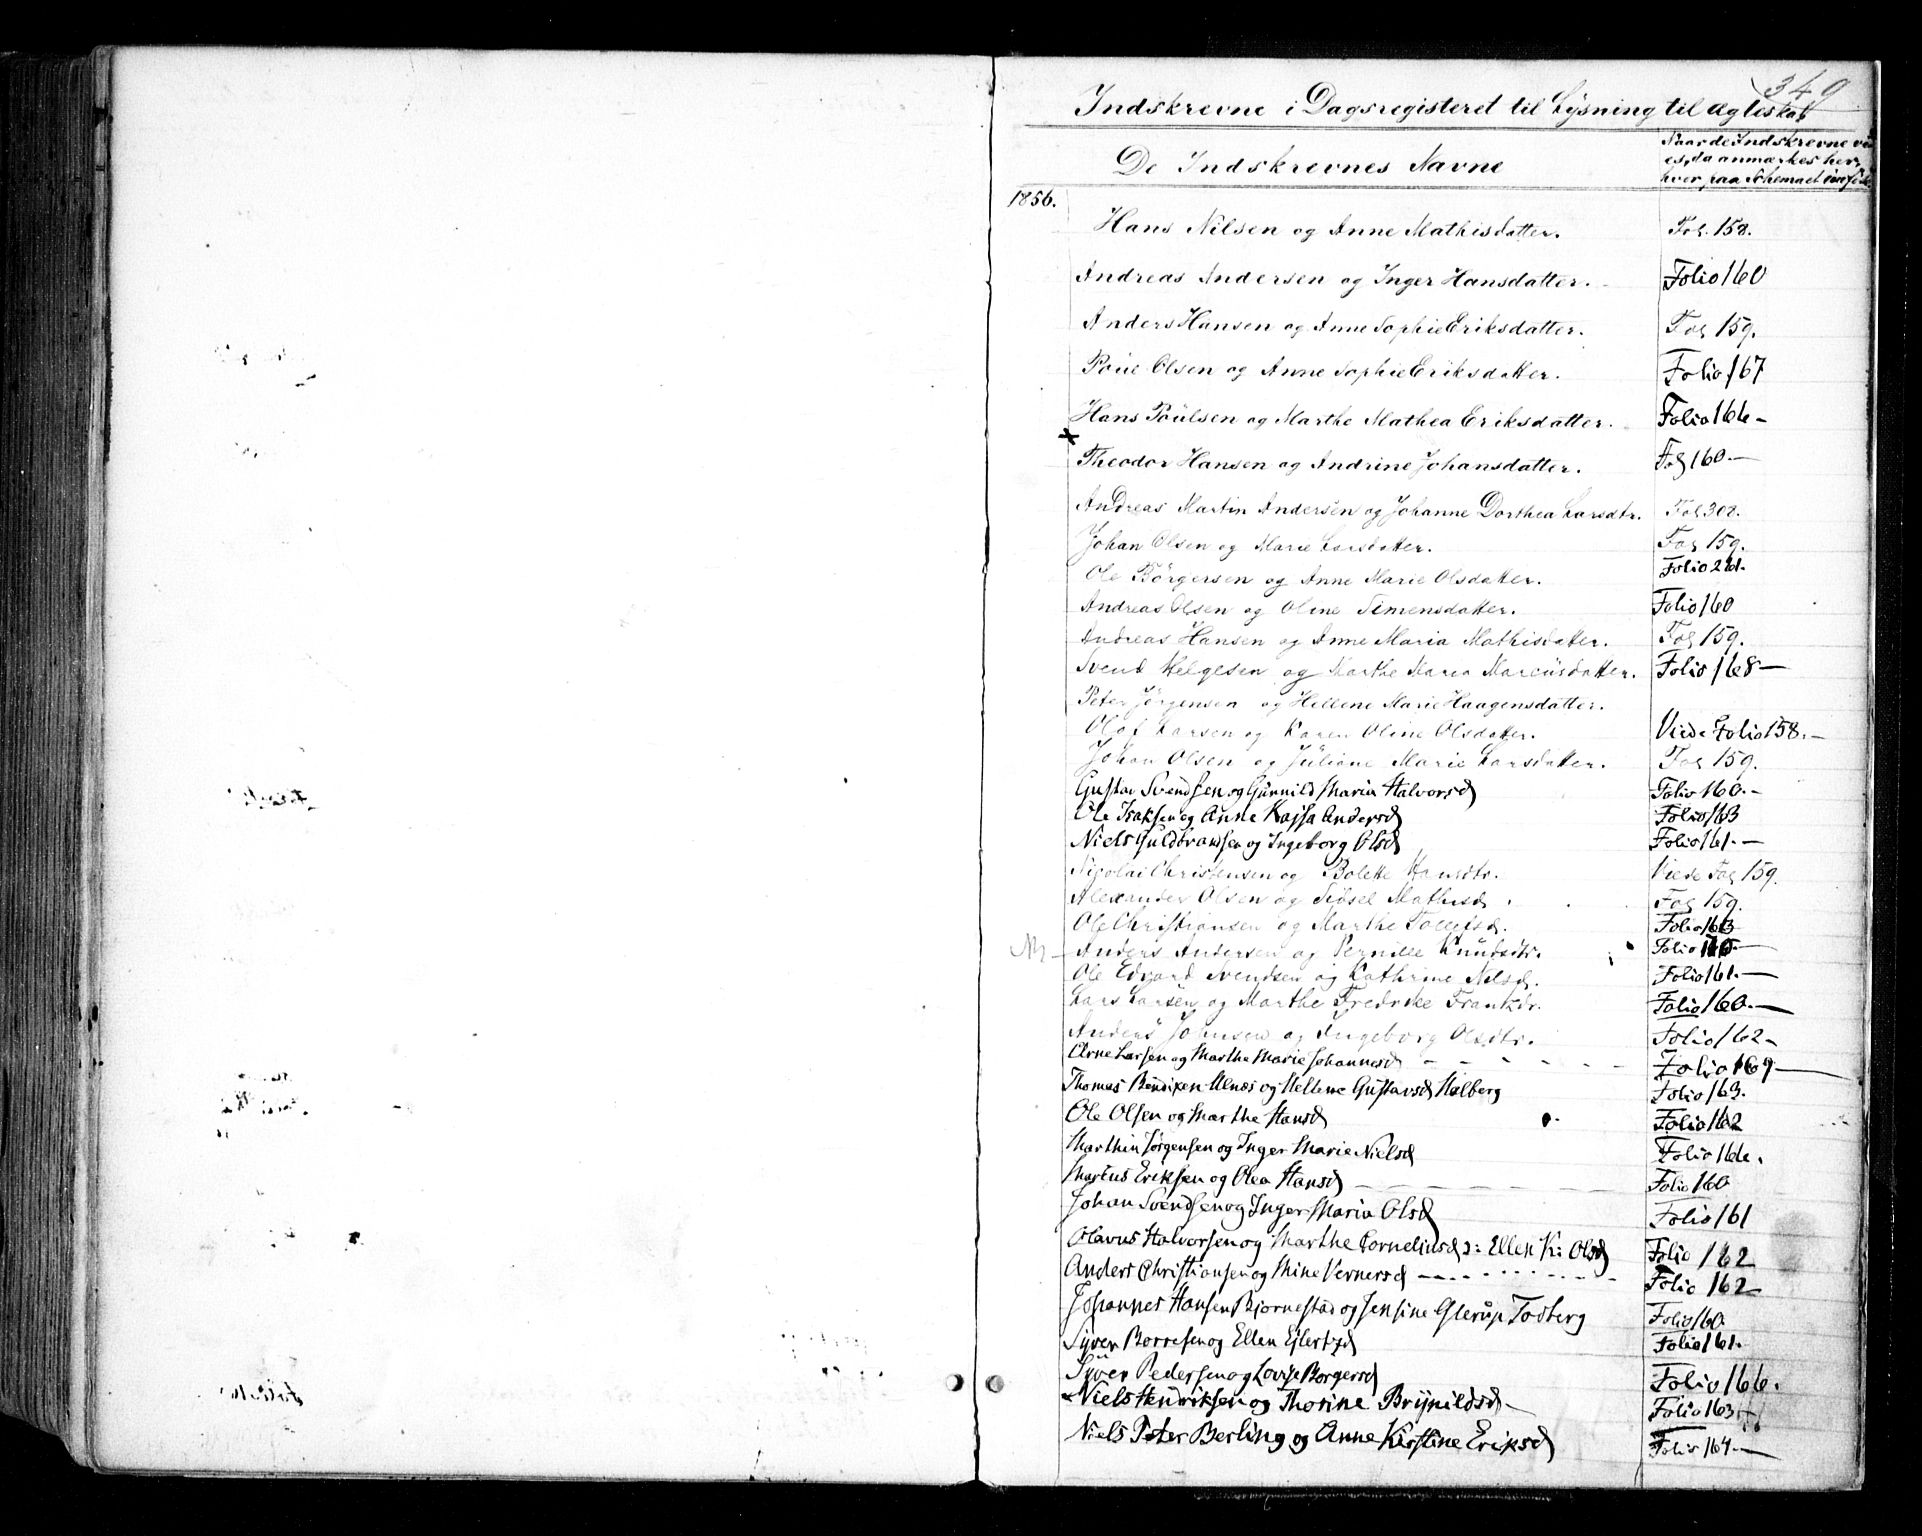 349
Indskrevne i Dagsregisteret til Lysning til Ægteskab
De Indskrevnes Navne
Naar de Indskrevne vi
es, da anmærkes her,
hvor paa Schemaet
1856.
Hans Nilsen og Anne Mathisdatter. Fol. 158.
Andreas Andersen og Inger Hansdatter. Folio 160
Anders Hansen og Anne Sophie Eriksdatter. Fol 159.
Poül Olsen og Anne Sophie Eriksdatter. Folio 167
Hans Poülsen og Marthe Mathea Eriksdatter. Folio 166-
x
Theodor Hansen og Andrine Johansdatter. Fol 160.-
Andreas Martin Andersen og Johanne Dorthea Larsdtr. Fol 308.
Johan Olsen og Marie Larsdatter. Fol 159.
Ole Börgersen og Anne Marie Olsdatter. Folio
Andreas Olsen og Oline Simensdatter. Folio 160
Andreas Hansen og Anne Maria Mathisdatter. Fol 159.
Svend Helgesen og Marthe Maria Marcüsdatter. Folio 168-
Peter Jörgensen og Hellene Marie Haagensdatter.
Olof Larsen og Karen Oline Olsdatter. Viede Folio 158.-
Johan Olsen og Jüliane Marie Larsdatter. Fol 159.
Gustav Svendsen og Günnild Maria Halvorsd Folio 160.-
Ole Isaksen og Anne Kajsa Andersd Folio 163
Niels Guldbrandsen og Ingeborg Olsd Folio 161.-
Nicolai Christensen og Bolette Hansdtr. Viede Fol 159.
Alexander Olsen og Sidsel Mathisd. Fol 159.
Ole Christiansen og Marthe Tollefsd. Folio 163
Anders Andersen og Pernille Knudsdtr. Folio
Ole Edvard Svendsen og Kathrine Nilsd. Folio 161.-
Lars Larsen og Marthe Fredrikke Frantzdr. Folio 160.-
Anders Johnsen og Ingeborg Olsdtr. Folio 162-
Arne Larsen og Marthe Marie Johannesd Folio 169-
Thomas Bendixen Ulnæs og Hellene Gustavsd Halberg Folio 163.
Ole Olsen og Marthe Hansd Folio 162
Marthin Jørgensen og Inger Marie Nielsd Folio 166.
Marius Eriksen og Olea Hansd Folio 160
Johan Svendsen og Inger Maria Olsd Folio 161
Olavus Halvorsen og Marthe Corneliusd ɔ: Ellen K: Olsd Folio 162
Anders Christiansen og Mine Vernersd Folio 162
Johannes Hansen Bjørnestad og Jensine Glerup Fosberg Folio 160
Syver Borresen og Ellen Ejlertzd Folio 161.
Syver Pedersen og Lovise Borgersd Folio 166.
Niels Hendriksen og Thorine Brynildsd- Folio 163
Niels Peter Berling og Anne Kirstine Eriksd Folio 164-